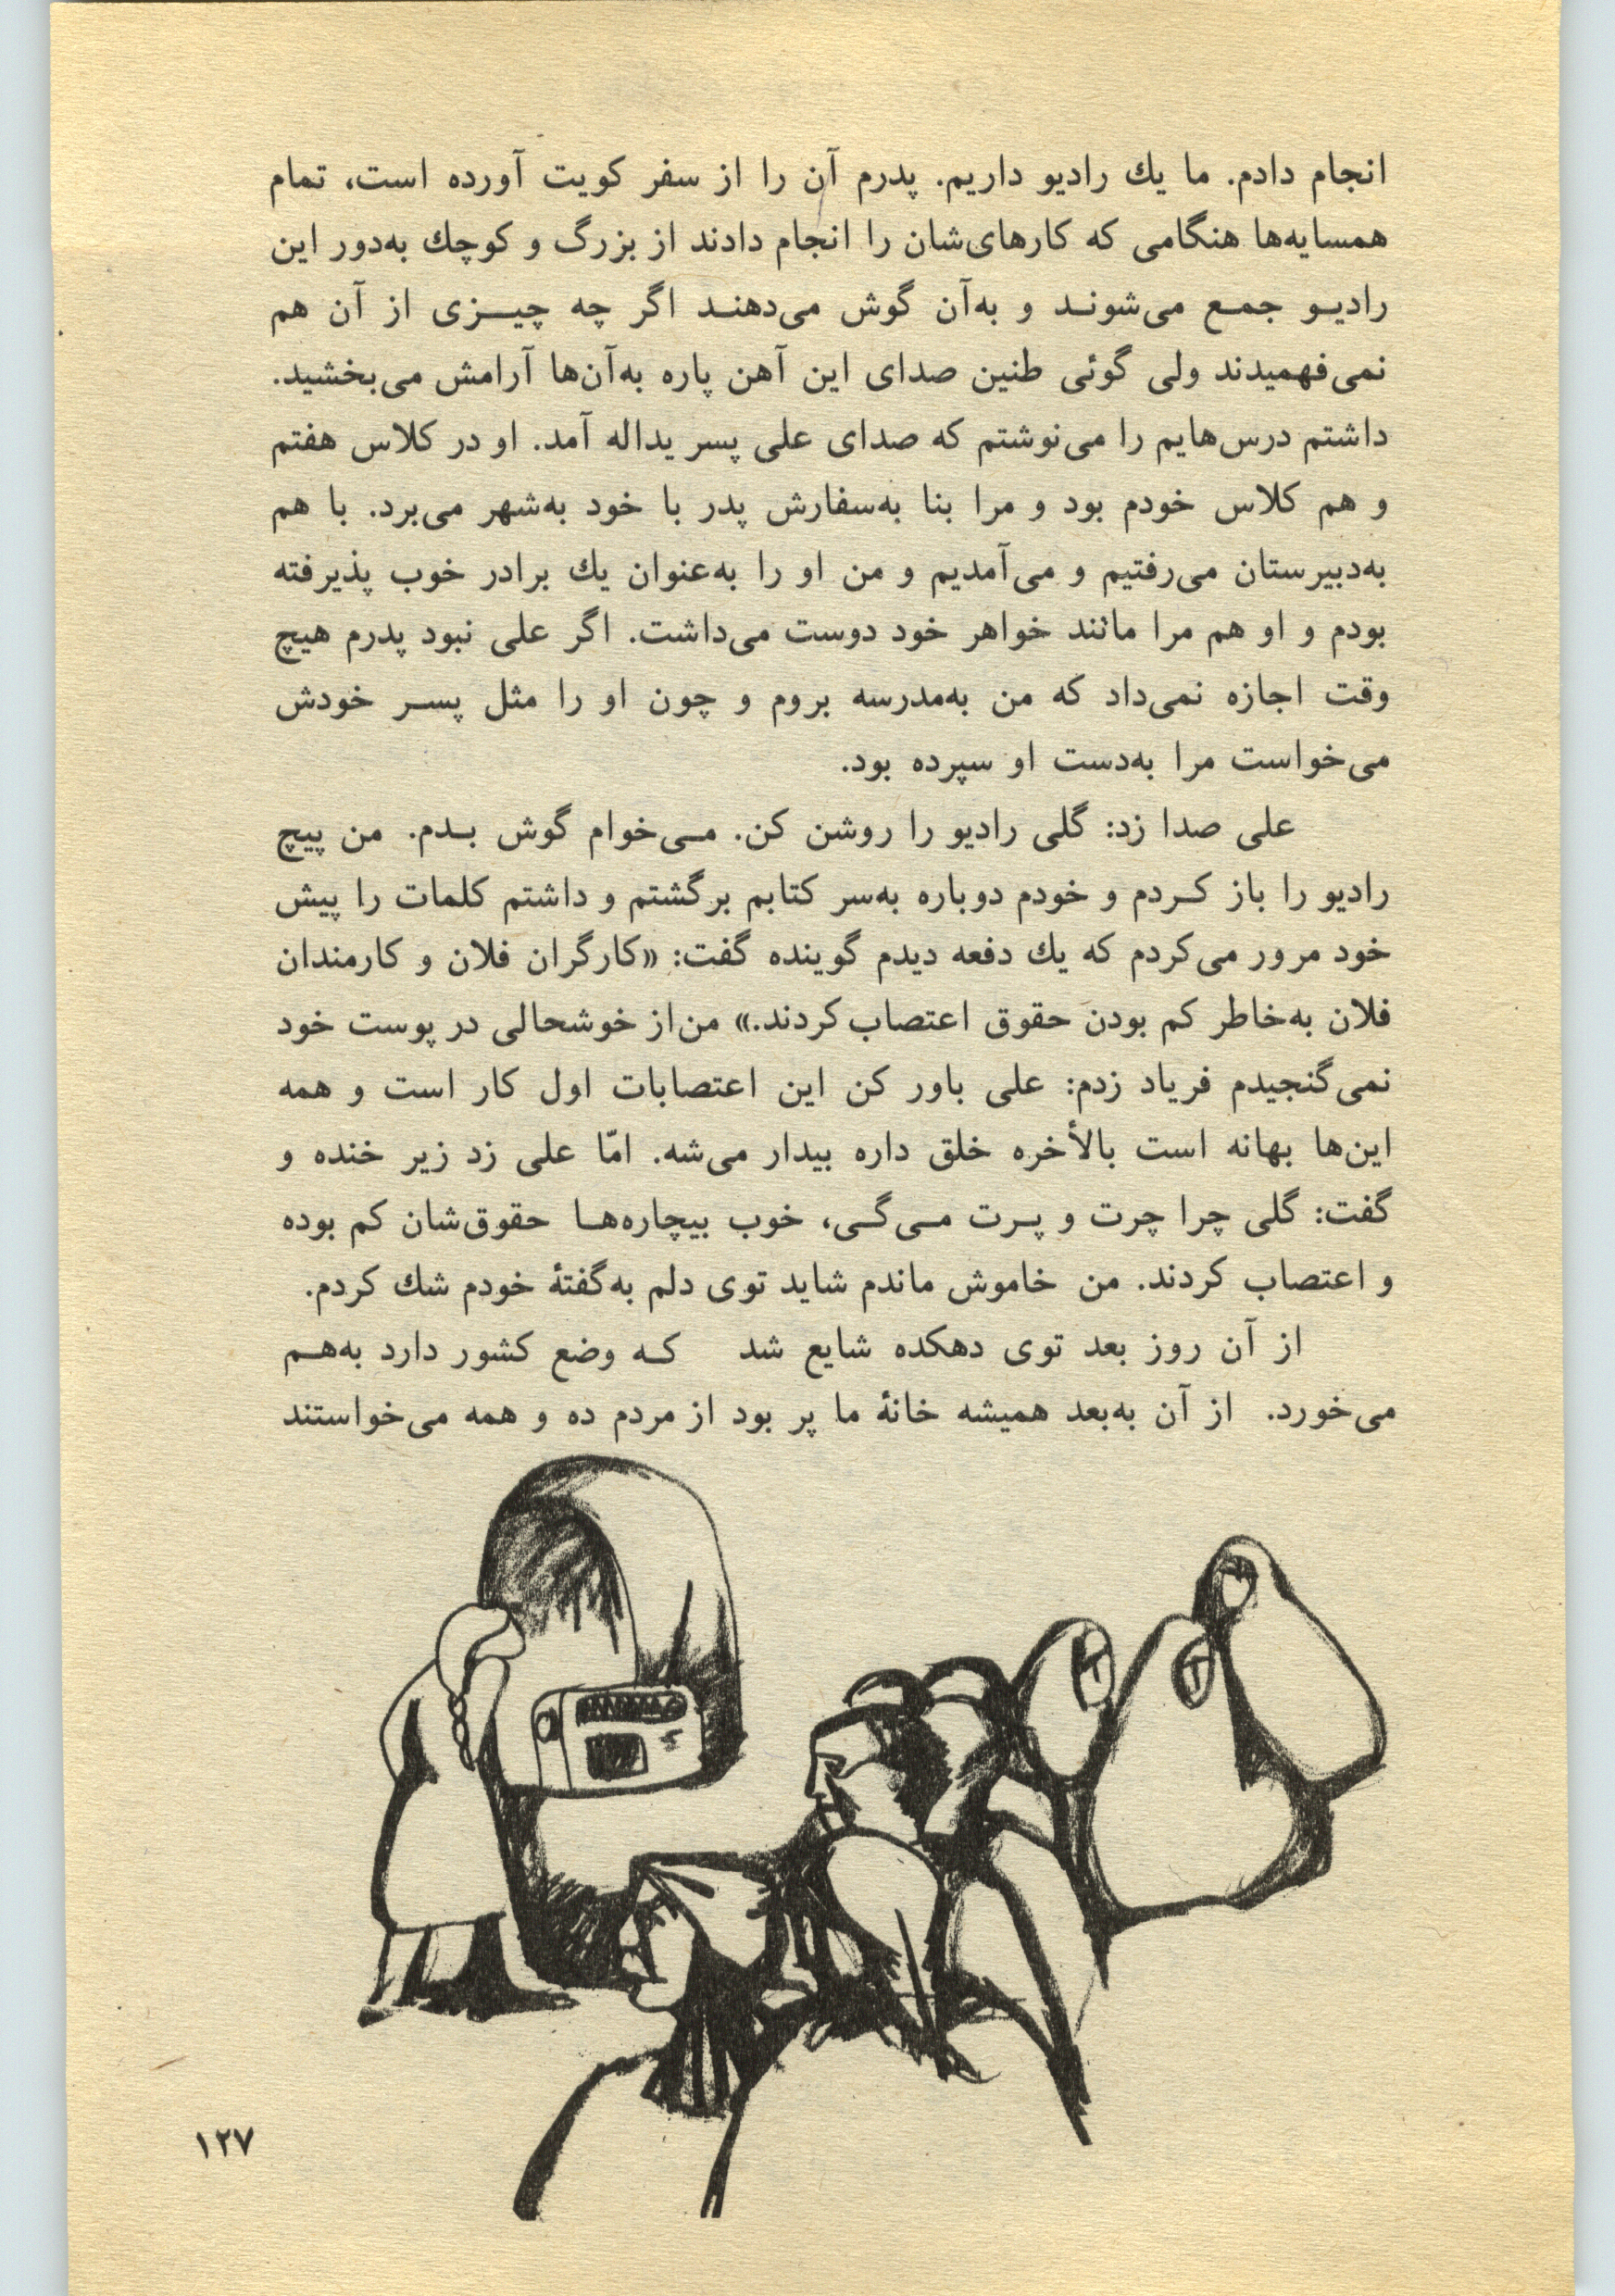 انجام دادم. ما یك رادیو داریم. پدرم آن را از سفر کویت آورده است، تمام
همسایه‌ها هنگامی که کارهای‌شان را انجام دادند از بزرگ و کوچك به‌دور این
رادیـو جمـع می‌شونـد و به‌آن گوش می‌دهنـد اگر چه چیــزی از آن هم
نمی‌فهمیدند ولی گوئی طنین صدای این آهن پاره به‌آن‌ها آرامش می‌بخشید.
داشتم درس‌هایم را می‌نوشتم که صدای علی پسر یداله آمد. او در کلاس هفتم
و هم کلاس خودم بود و مرا بنا به‌سفارش پدر با خود به‌شهر می‌برد. با هم
به‌دبیرستان می‌رفتیم و می‌آمدیم و من او را به‌عنوان یك برادر خوب پذیرفته
بودم و او هم مرا مانند خواهر خود دوست می‌داشت. اگر علی نبود پدرم هیچ
وقت اجازه نمی‌داد که من به‌مدرسه بروم و چون او را مثل پسـر خودش
می‌خواست مرا به‌دست او سپرده بود.
علی صدا زد: گلی رادیو را روشن کن. مـی‌خوام گوش بـدم. من پیچ
رادیو را باز کـردم و خودم دوباره به‌سر کتابم برگشتم و داشتم کلمات را پیش
خود مرور می‌کردم که یك دفعه دیدم گوینده گفت: «کارگران فلان و کارمندان
فلان به‌خاطر کم بودن حقوق اعتصاب کردند.» من از خوشحالی در پوست خود
نمی‌گنجیدم فریاد زدم: علی باور کن این اعتصابات اول کار است و همه
این‌ها بهانه است بالأخره خلق داره بیدار می‌شه. امّا علی زد زیر خنده و
گفت: گلی چرا چرت و پـرت مـی‌گـی، خوب بیچاره‌هـا حقوق‌شان کم بوده
و اعتصاب کردند. من خاموش ماندم شاید توی دلم به‌گفتهٔ خودم شك کردم.
از آن روز بعد توی دهکده شایع شد کـه وضع کشور دارد به‌هـم
می‌خورد. از آن به‌بعد همیشه خانهٔ ما پر بود از مردم ده و همه می‌خواستند
۱۲۷